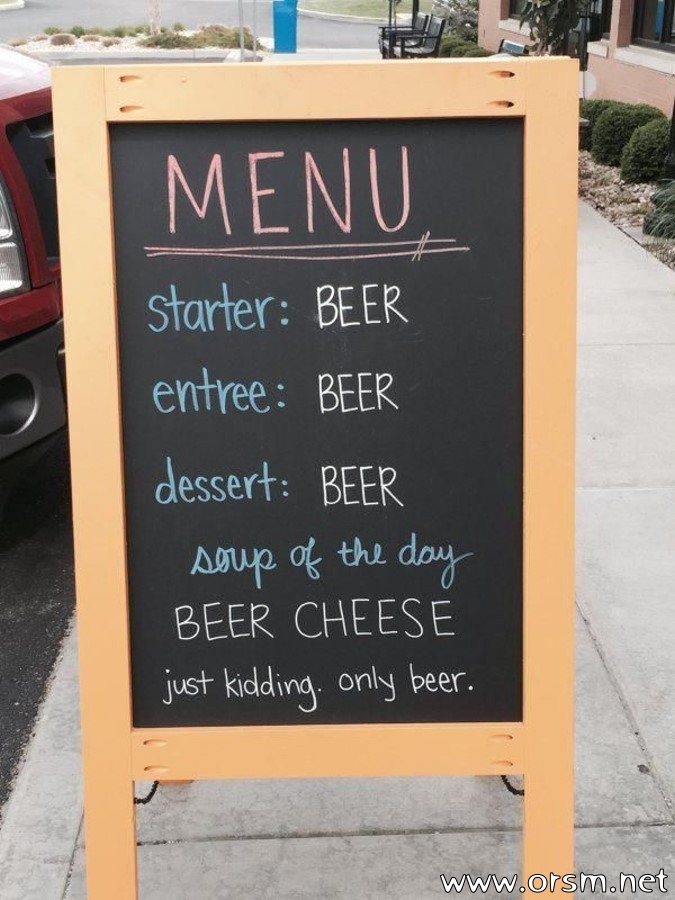 MENU
starter: BEER
entree: BEER
dessert: BEER
soup of the day
BEER CHEESE
just kidding. only beer.
www.orsm.net